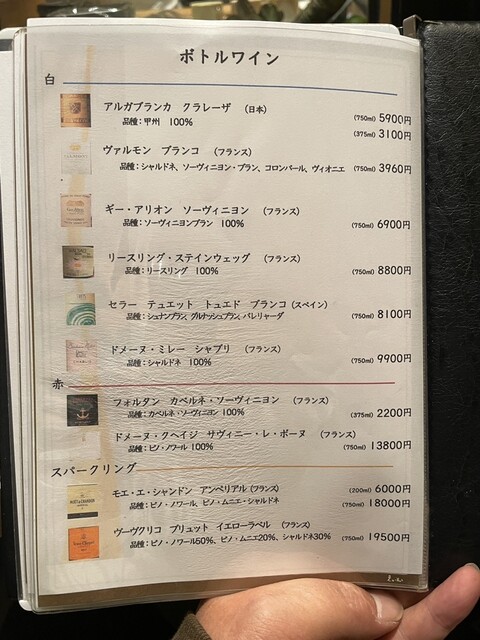 ボトルワイン
白
アルガブランカ クラレーザ (日本)
品種:甲州 100% (750ml) 5900円
(375ml) 3100円
ヴァルモン ブランコ (フランス)
品種:シャルドネ、ソーヴィニヨン・ブラン、コロンバール、ヴィオニエ (750ml) 3960円
ギー・アリオン ソーヴィニヨン (フランス)
品種:ソーヴィニヨンブラン 100% (750ml) 6900円
リースリング・ステインウェッグ (フランス)
品種:リースリング 100% (750ml) 8800円
セラー テュエット トュエド ブランコ (スペイン)
品種:シュナンブラン、グルナッシュブラン、パレリャーダ (750ml) 8100円
ドメーヌ・ミレー シャブリ (フランス)
品種:シャルドネ 100% (750ml) 9900円
赤
フォルタン カベルネ・ソーヴィニヨン (フランス)
品種:カベルネ・ソーヴィニヨン 100% (375ml) 2200円
ドメーヌ・クヘイジ サヴィニー・レ・ボーヌ (フランス)
品種:ピノ・ノワール 100% (750ml) 13800円
スパークリング
モエ・エ・シャンドン アンペリアル (フランス) (200ml) 6000円
品種:ピノ・ノワール、ピノ・ムニエ・シャルドネ (750ml) 18000円
ヴーヴクリコ ブリュット イエローラベル (フランス)
品種:ピノ・ノワール50%、ピノ・ムニエ20%、シャルドネ30% (750ml) 19500円